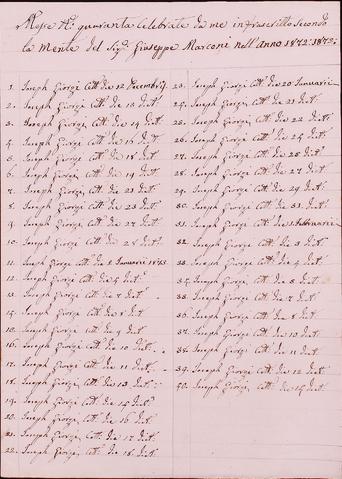 Messe N.º quaranta celebrate da me infrascritto secondo
la mente del Sig.r Giuseppe Marconi nell'anno 1872. 1873:
1. Joseph Giorgi Catt. die 12 Decembris
2. Joseph Giorgi Catt. die 13 dict.
3. Joseph Giorgi, Catt. die 14 dict.
4. Joseph Giorgi Catt. die 16 dict.
5. Joseph Giorgi Catt. die 18 dict.
6. Joseph Giorgi Catt. die 19 dict.
7. Joseph Giorgi Catt. die 21 dict.
8. Joseph Giorgi Catt. die 23 dict.
9. Joseph Giorgi Catt. die 27 dict.
10. Joseph Giorgi Catt. die 28 dict.
11. Joseph Giorgi Catt. die 2 Januarii 1873
12. Joseph Giorgi Catt. die 5 dict.
13. Joseph Giorgi Catt. die 7 dict.
Joseph Giorgi Catt. die 8 dict
Joseph Giorgi Catt. die 9 dict.
16. Joseph Giorgi Catt. die 10 dict.
17. Joseph Giorgi Catt. die 11 dict.
18. Joseph Giorgi Catt. die 13 dict.
19. Joseph Giorgi Catt. die 15 dict.
20. Joseph Giorgi Catt. die 16 dict.
21. Joseph Giorgi, Catt. die 17 dict.
22. Joseph Giorgi Catt. die 18 dict.
23. Joseph Giorgi Catt. die 20 Januarii
24. Joseph Giorgi Catt. die 21 dict.
25. Joseph Giorgi Catt. die 22 dict.
26. Joseph Giorgi Catt. die 25 dict.
27. Joseph Giorgi Catt. die 26 dict.
28. Joseph Giorgi Catt. die 27 dict.
29. Joseph Giorgi Catt. die 29 dict.
30. Joseph Giorgi Catt. die 31 dict.
31. Joseph Giorgi Catt. die 1 Februarii
32. Joseph Giorgi Catt. die 3 dict.
33. Joseph Giorgi Catt. die 4 dict.
Joseph Giorgi Catt. die 5 dict.
35. Joseph Giorgi Catt. die 7 dict.
36. Joseph Giorgi Catt. die 8 dict.
37. Joseph Giorgi Catt. die 10 dict.
38. Joseph Giorgi Catt. die 11 dict.
39. Joseph Giorgi Catt. die 12 dict.
40. Joseph Giorgi Catt. die 14 dict.